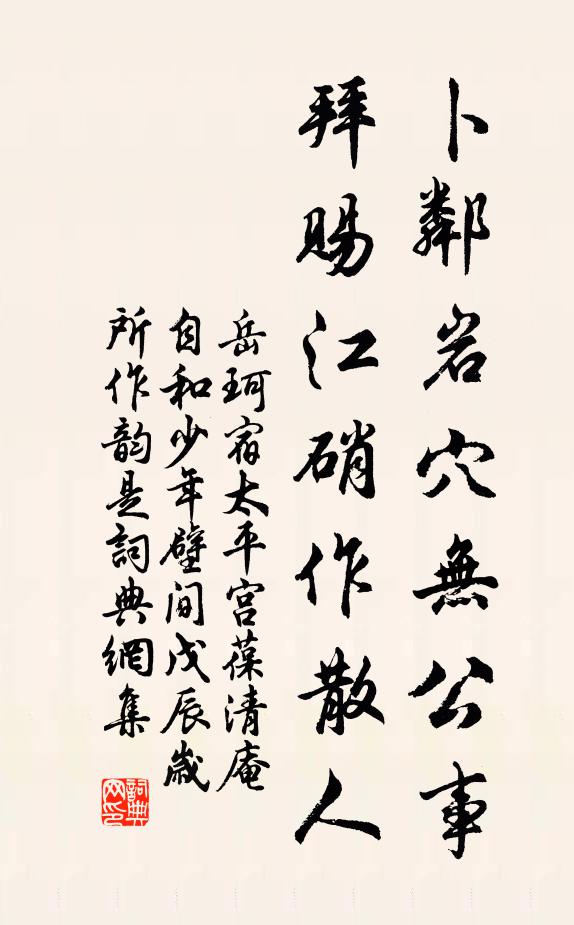 卜鄰岩穴無公事
拜賜江硝作散人
岳珂宿太平宫葆清庵
自和少年壁间戊辰歲
所作韵是詞典網集
詞典网印